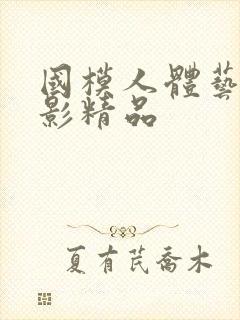 國模人體藝
影精品
夏有芪喬木